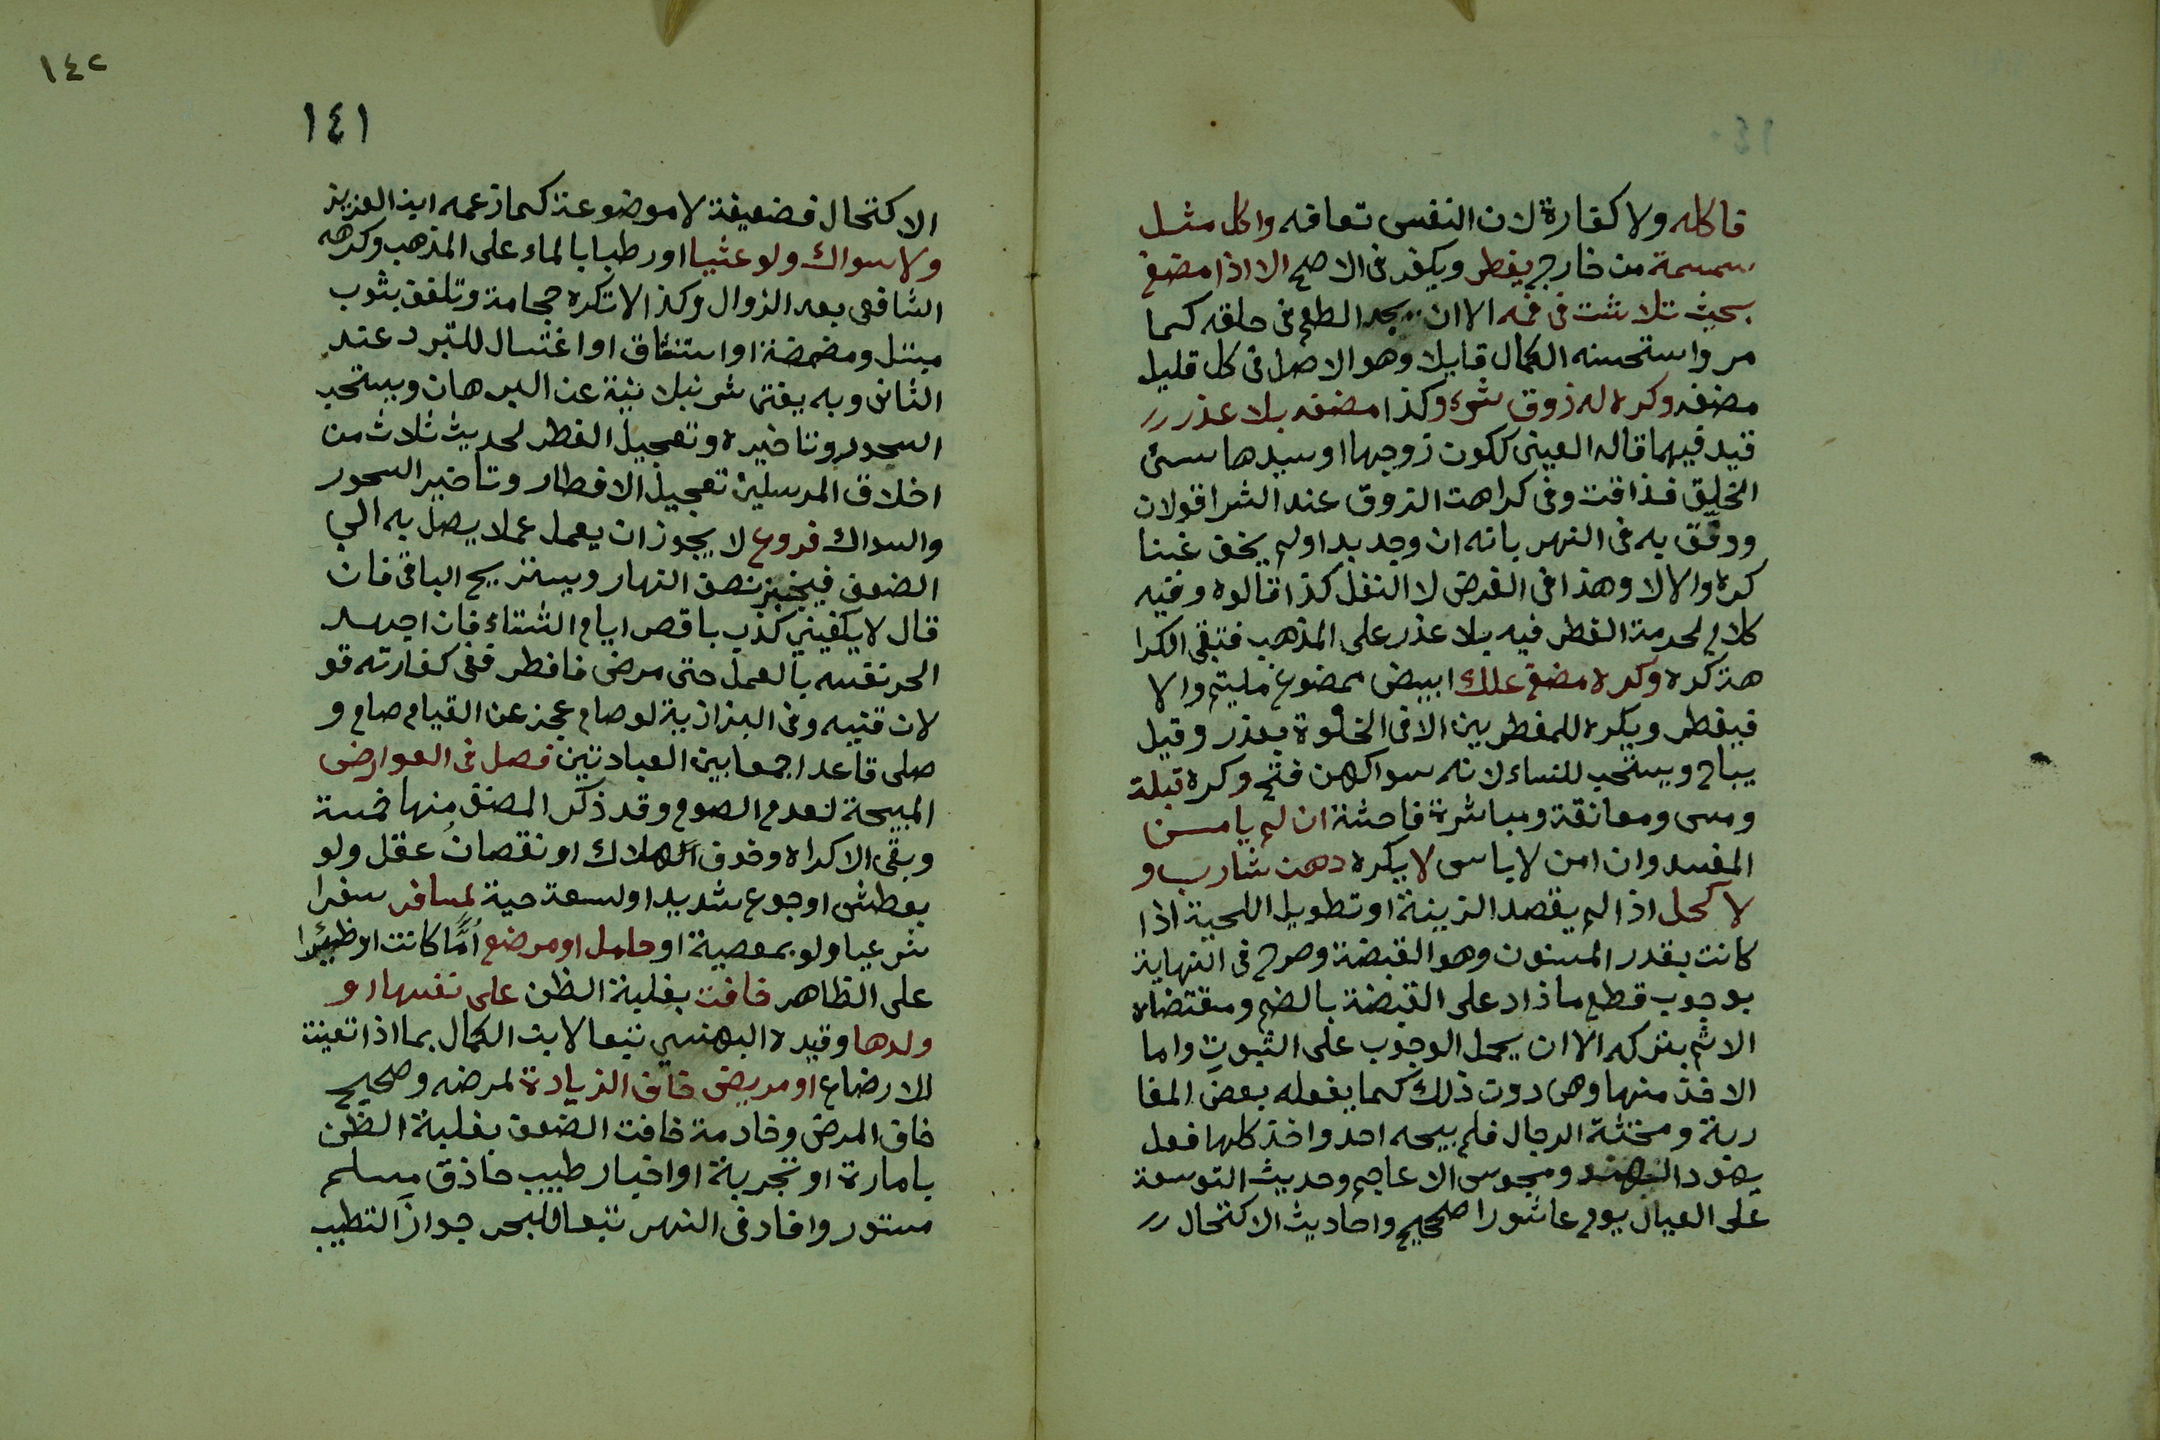 ١٤٠
فاكله ولا كفارة لان النفس تعافه واكل مثل
سمسمة من خارج يفطر ويكفر في الاصح الا اذا مضغ
بحيث تلاشت في فمه الا ان يجد الطعم في حلقه كما
مر واستحسنه الكمال قايلا وهو الاصل في كل قليل
مضغه وكره له ذوق شيء وكذا مضغه بلا عذر
قيد فيهما قاله العيني ككون زوجها او سيدها سيئ
الخلق فذاقت وفي كراهت الذوق عند الشرا قولان
ووفق به في النهر بانه ان وجد بدا ولم يخف غبنا
كره والا لا وهذا في الفرض لا النفل كذا قالوه وفيه
كلام لحرمة الفطر فيه بلا عذر على المذهب فتبقى الكرا
هة كره وكره مضغ علك ابيض ممضوغ ملتيم والا
فيفطر ويكره للمفطرين الا في الخلوة بعذر وقيل
يباح ويستحب للنساء لانه سواكهن فتح وكره قبلة
ومس ومعانقة ومباشرة فاحشة ان لم يامن
المفسد وان امن لا باس لا يكره دهن شارب و
لا كحل اذا لم يقصد الزينة او تطويل اللحية اذا
كانت بقدر المسنون وهو القبضة وصرح في النهاية
بوجوب قطع ما زاد على القبضة بالضم ومقتضاه
الاثم بتركه الا ان يحمل الوجوب على الثبوت واما
الاخذ منها وهي دون ذلك كما يفعله بعض المغا
ربة ومخنثة الرجال فلم يبحه احد واخذ كلها فعل
يهود الهند ومجوس الاعاجم وحديث التوسعة
على العيال يوم عاشورا صحيح واحاديث الاكتحال
١٤٢
١٤١
الاكتحال فضعيفة لا موضوعة كما زعمه ابن العزيز
ولا سواك ولو عشيا او رطبا بالماء على المذهب وكرهه
الشافعي بعد الزوال وكذا لا تكره حجامة وتلفف بثوب
مبتل ومضمضة او استنشاق او اغتسال للتبرد عند
الثاني وبه يفتى شرنبلانية عن البرهان ويستحب
السحور وتاخيره وتعجيل الفطر لحديث ثلاث من
اخلاق المرسلين تعجيل الافطار وتاخير السحور
والسواك فروع لا يجوز ان يعمل عملا يصل به الي
الضعف فيخبز نصف النهار ويستريح الباقي فان
قال لا يكفيني كذب باقصر ايام الشتاء فان اجهد
الحر نفسه بالعمل حتى مرض فافطر ففي كفارته قو
لان قنيه وفي البزازية لو صام عجز عن القيام صام و
صلى قاعدا جمعا بين العبادتين فصل في العوارض
المبيحة لعدم الصوم وقد ذكر المصنف منها خمسة
وبقي الاكراه وخوف الهلاك او نقصان عقل ولو
بعطش او جوع شديد او لسعة حية لمسافر سفرا
شرعيا ولو بمعصية او حامل او مرضع اما كانت او ظيرا
على الظاهر خافت بغلبة الظن على نفسها او
ولدها وقيده البهنسي تبعا لابن الكمال بما اذا تعينت
للارضاع او مريض خاف الزيادة لمرضه وصحيح
خاف المرض وخادمة خافت الضعف بغلبة الظن
بامارة او تجربة او اخبار طبيب حاذق مسلم
مستور وافاد في النهر تبعا للبحر جواز التطبيب